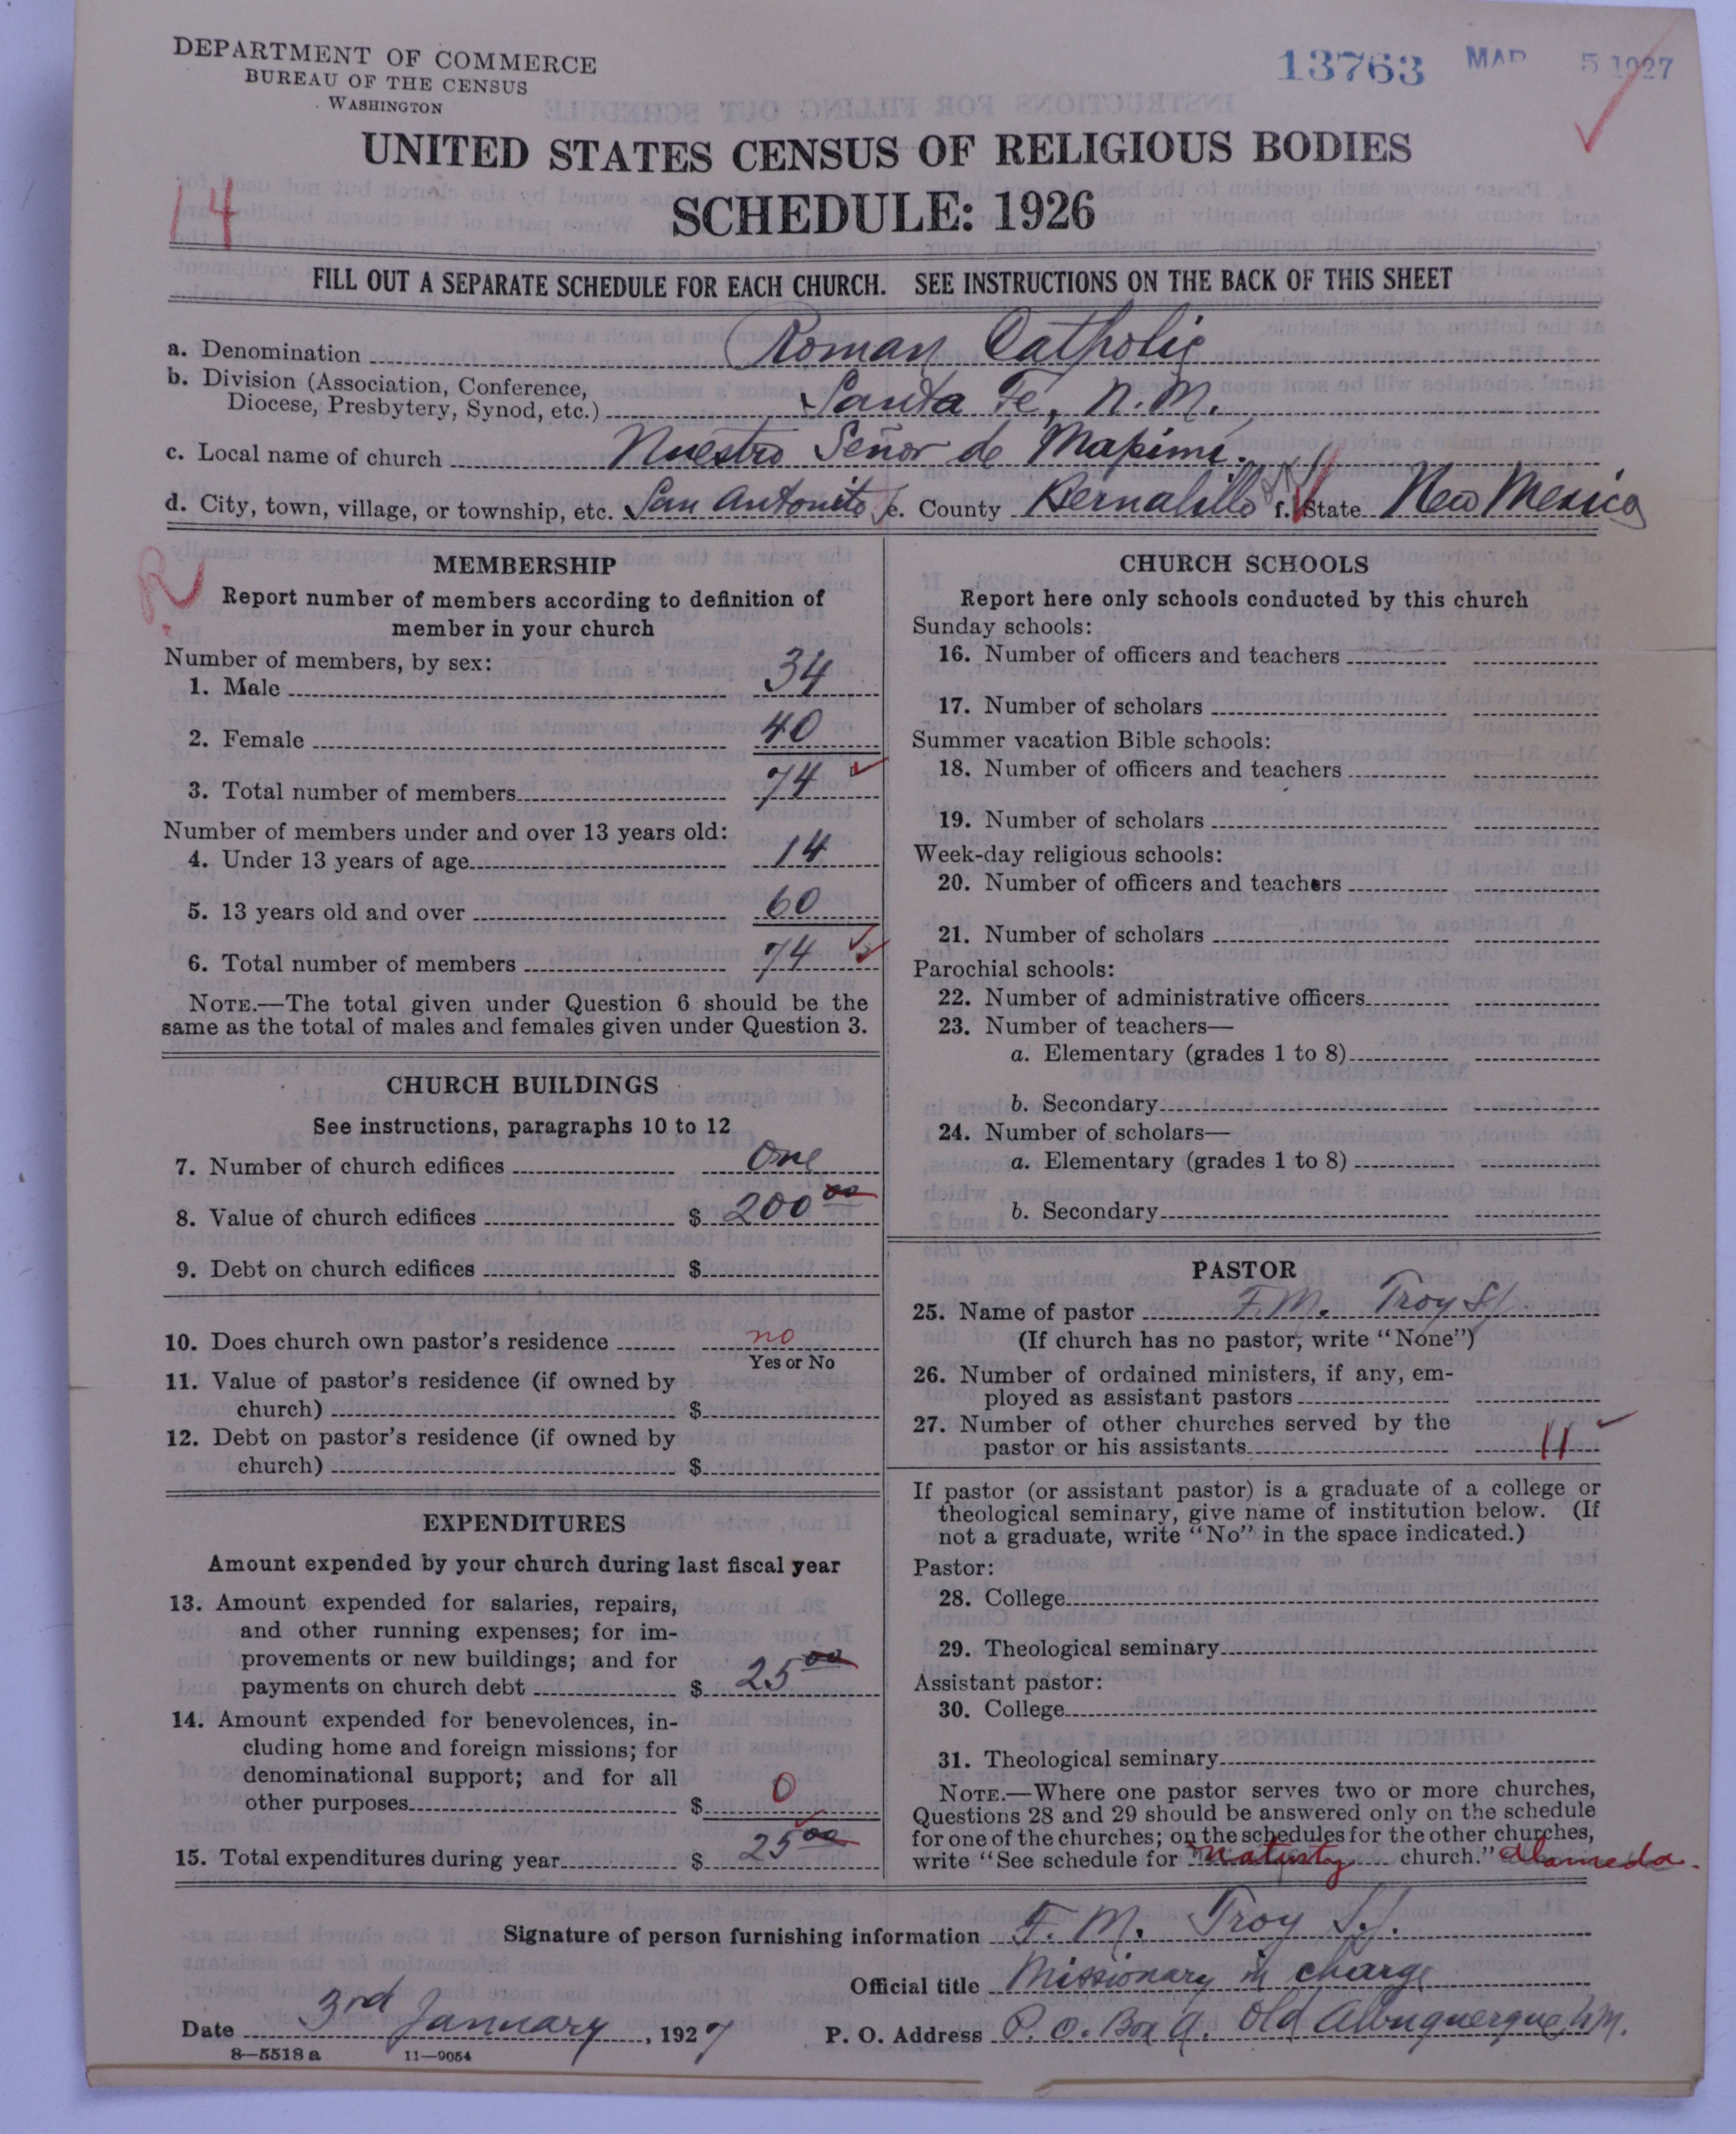 DEPARTMENT OF COMMERCE
BUREAU OF THE CENSUS
WASHINGTON
13763 MAR 5 1927
UNITED STATES CENSUS OF RELIGIOUS BODIES
14
SCHEDULE: 1926
FILL OUT A SEPARATE SCHEDULE FOR EACH CHURCH. SEE INSTRUCTIONS ON THE BACK OF THIS SHEET
a. Denomination Roman Catholic
b. Division (Association, Conference,
Diocese, Presbytery, Synod, etc.) Santa Fe, N.M.
c. Local name of church Nuestro Señor de Mapimi.
d. City, town, village, or township, etc. San Antonito e. County Bernalillo f. State New Mexico
R
MEMBERSHIP
Report number of members according to definition of
member in your church
Number of members, by sex:
1. Male 34
2. Female 40
3. Total number of members 74
Number of members under and over 13 years old:
4. Under 13 years of age 14
5. 13 years old and over 60
6. Total number of members 74
NOTE.—The total given under Question 6 should be the
same as the total of males and females given under Question 3.
CHURCH BUILDINGS
See instructions, paragraphs 10 to 12
7. Number of church edifices One
8. Value of church edifices $ 200 00
9. Debt on church edifices $
10. Does church own pastor's residence no
Yes or No
11. Value of pastor's residence (if owned by
church) $
12. Debt on pastor's residence (if owned by
church) $
EXPENDITURES
Amount expended by your church during last fiscal year
13. Amount expended for salaries, repairs,
and other running expenses; for im-
provements or new buildings; and for
payments on church debt $ 25 00
14. Amount expended for benevolences, in-
cluding home and foreign missions; for
denominational support; and for all
other purposes $ 0
15. Total expenditures during year $ 25 00
CHURCH SCHOOLS
Report here only schools conducted by this church
Sunday schools:
16. Number of officers and teachers
17. Number of scholars
Summer vacation Bible schools:
18. Number of officers and teachers
19. Number of scholars
Week-day religious schools:
20. Number of officers and teachers
21. Number of scholars
Parochial schools:
22. Number of administrative officers
23. Number of teachers—
a. Elementary (grades 1 to 8)
b. Secondary
24. Number of scholars—
a. Elementary (grades 1 to 8)
b. Secondary
PASTOR
25. Name of pastor F. M. Troy SJ.
(If church has no pastor, write "None")
26. Number of ordained ministers, if any, em-
ployed as assistant pastors
27. Number of other churches served by the
pastor or his assistants 11
If pastor (or assistant pastor) is a graduate of a college or
theological seminary, give name of institution below. (If
not a graduate, write "No" in the space indicated.)
Pastor:
28. College
29. Theological seminary
Assistant pastor:
30. College
31. Theological seminary
NOTE.—Where one pastor serves two or more churches,
Questions 28 and 29 should be answered only on the schedule
for one of the churches; on the schedules for the other churches,
write "See schedule for church." Alameda.
Signature of person furnishing information F. M. Troy S.J.
Official title Missionary in charge
Date 3rd January, 1927 P. O. Address P. O. Box A. Old Albuquerque N.M.
8—5518 a 11—9054